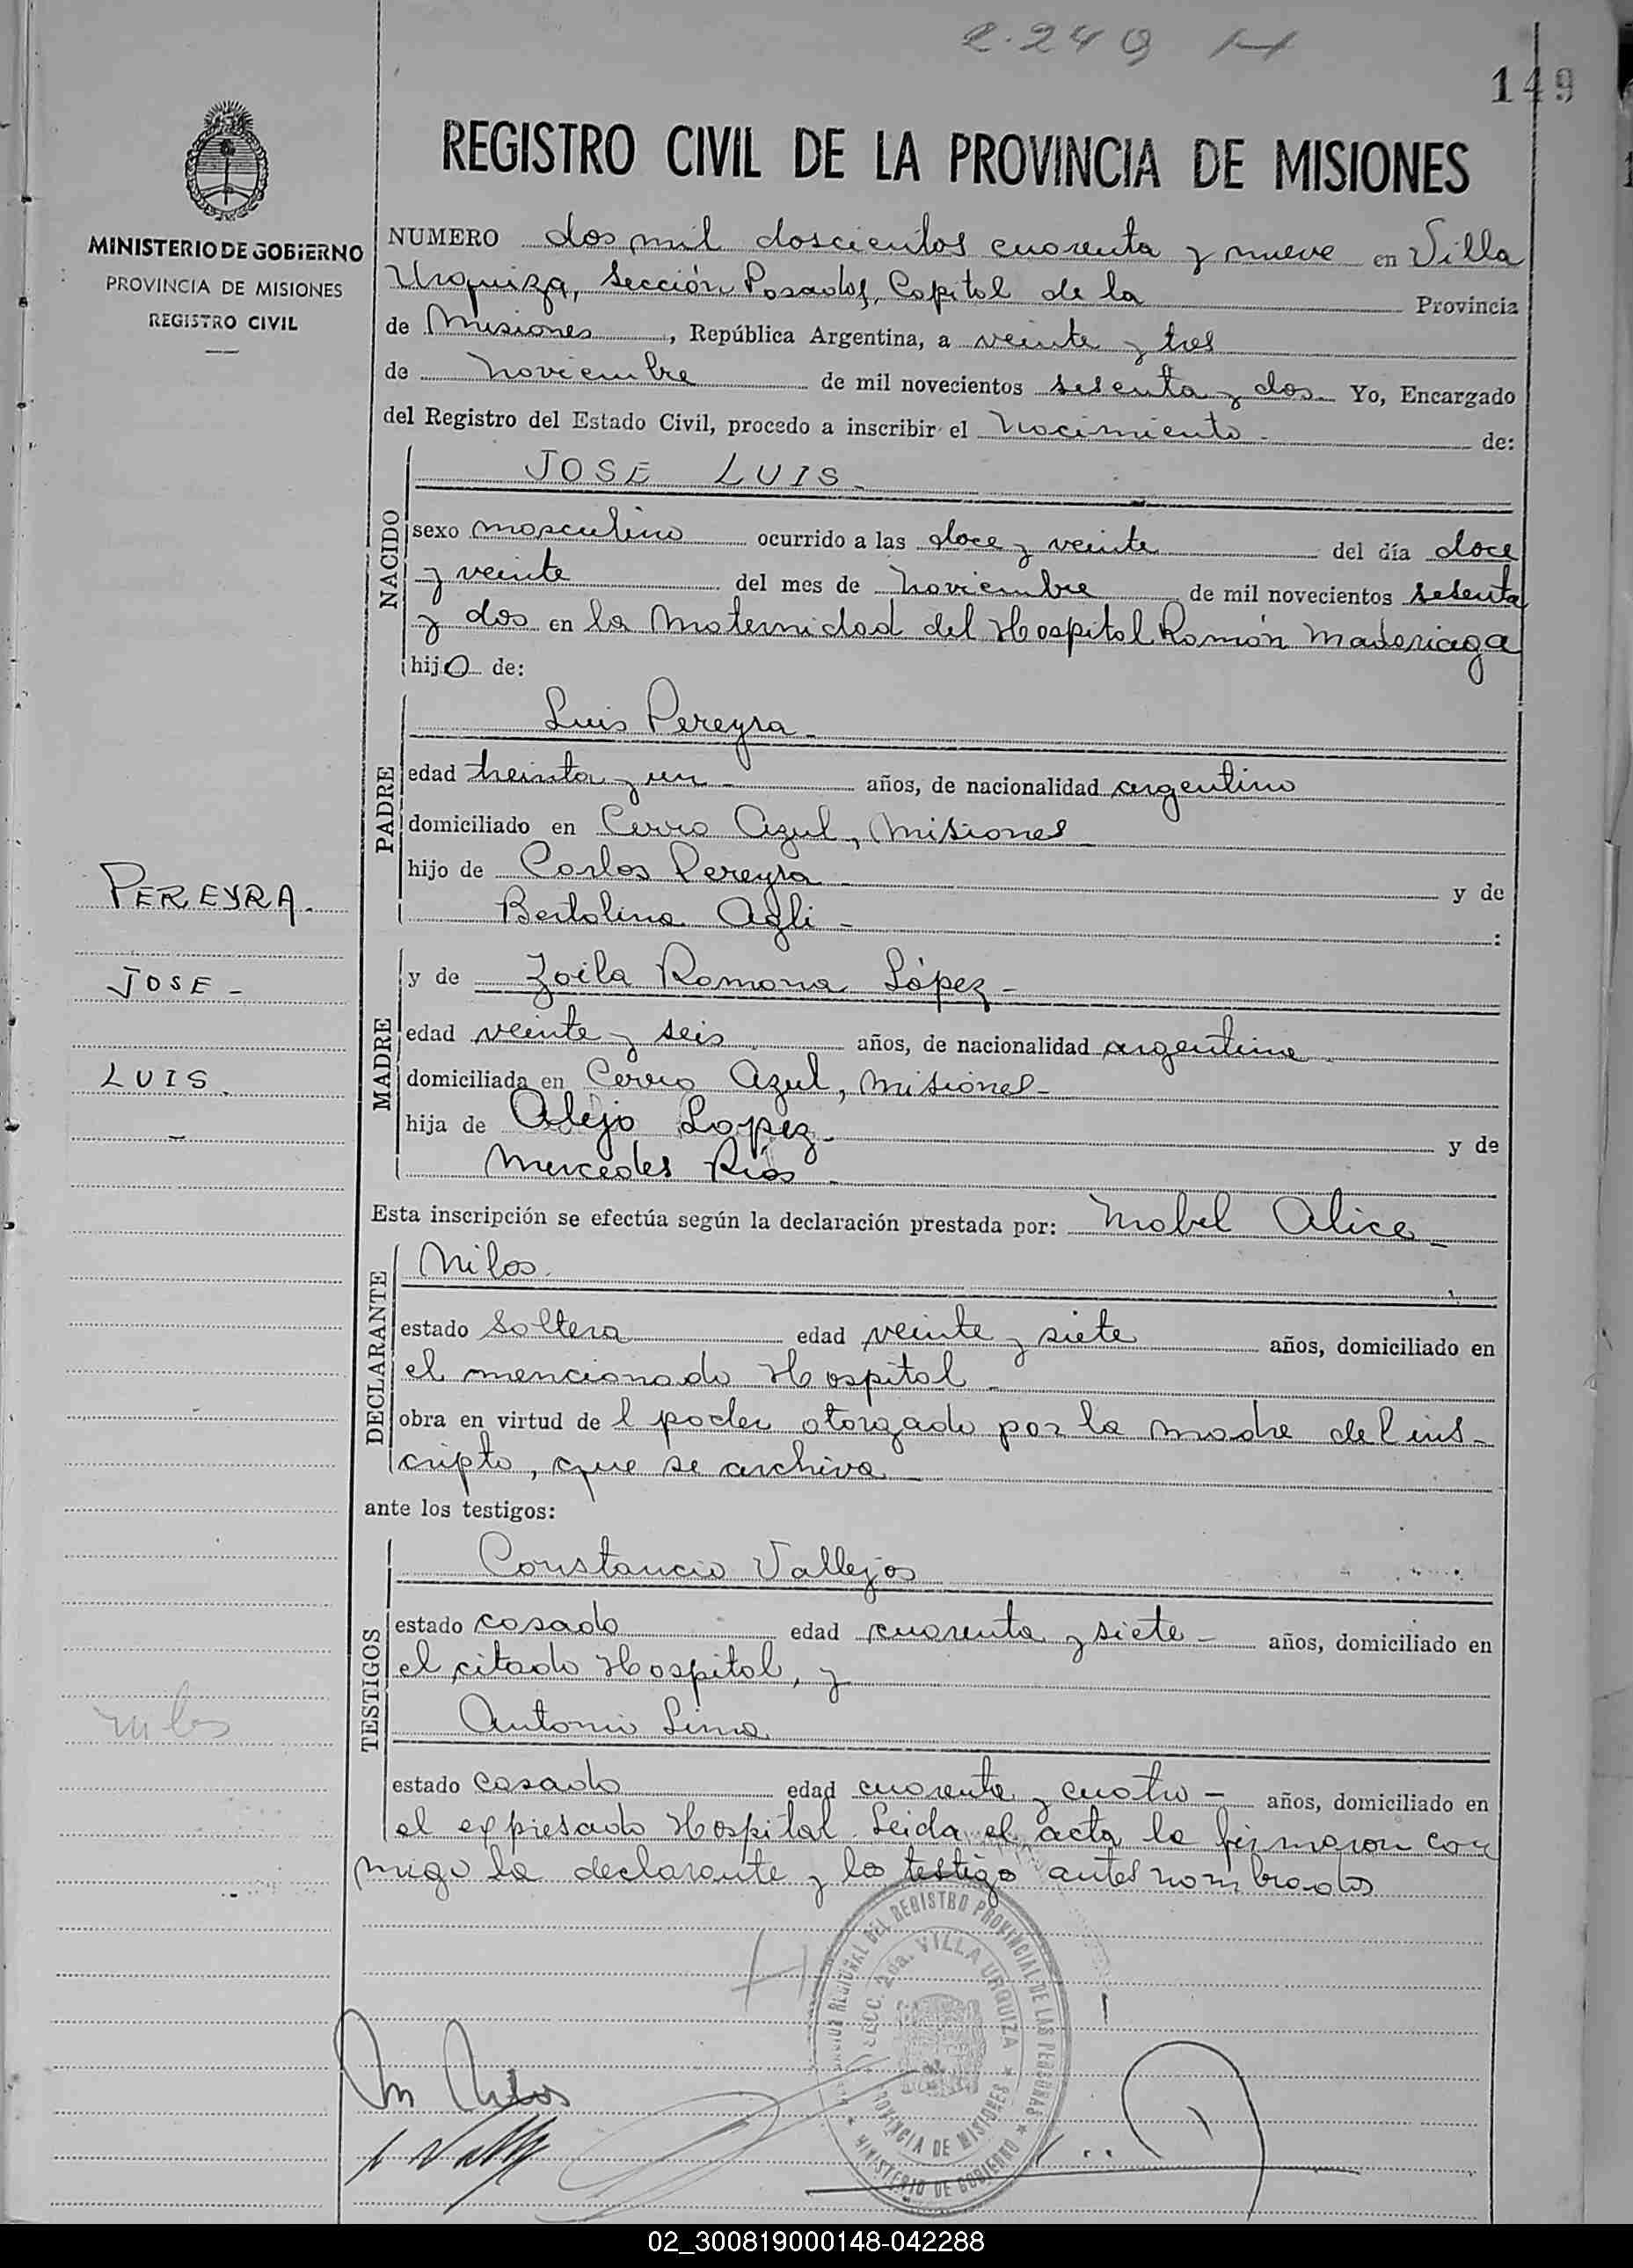 2.249
149
MINISTERIO DE GOBIERNO
PROVINCIA DE MISIONES
REGISTRO CIVIL
REGISTRO CIVIL DE LA PROVINCIA DE MISIONES
NUMERO dos mil doscientos cuarenta y nueve en Villa
Urquiza, Sección Posadas, Capital de la Provincia
de Misiones, República Argentina, a veinte y tres
de noviembre de mil novecientos sesenta y dos. Yo, Encargado
del Registro del Estado Civil, procedo a inscribir el nacimiento - de:
NACIDO
JOSE LUIS -
sexo masculino ocurrido a las doce y veinte del día doce
y veinte del mes de noviembre de mil novecientos sesenta
y dos en la Maternidad del Hospital Ramón Madariaga
hijo de:
PADRE
Luis Pereyra -
edad treinta y un - años, de nacionalidad argentino
domiciliado en Cerro Azul, Misiones
hijo de Carlos Pereyra - y de
Bertolina -
PEREYRA. -
JOSE -
LUIS. -
MADRE
y de Zoila Ramona López -
edad veinte y seis años, de nacionalidad argentina
domiciliada en Cerro Azul, Misiones -
hija de Alejo Lopez - y de
Mercedes Ríos -
Esta inscripción se efectúa según la declaración prestada por: Mabel Alice -
DECLARANTE
Milos.
estado soltera edad veinte y siete años, domiciliado en
el mencionado Hospital -
obra en virtud del poder otorgado por la madre del ins-
cripto, que se archiva
ante los testigos:
TESTIGOS
Constancio Vallejos
estado casado edad cuarenta y siete - años, domiciliado en
el citado Hospital, y
Antonio Lima
estado casado edad cuarenta y cuatro - años, domiciliado en
el expresado Hospital. Leida el acta la firmaron con
migo la declarante y los testigo antes nombrados
REGIONAL DEL REGISTRO PROVINCIAL DE LAS PERSONAS
SECC. 2da. VILLA URQUIZA
PROVINCIA DE MISIONES
MINISTERIO DE GOBIERNO
02_300819000148-042288